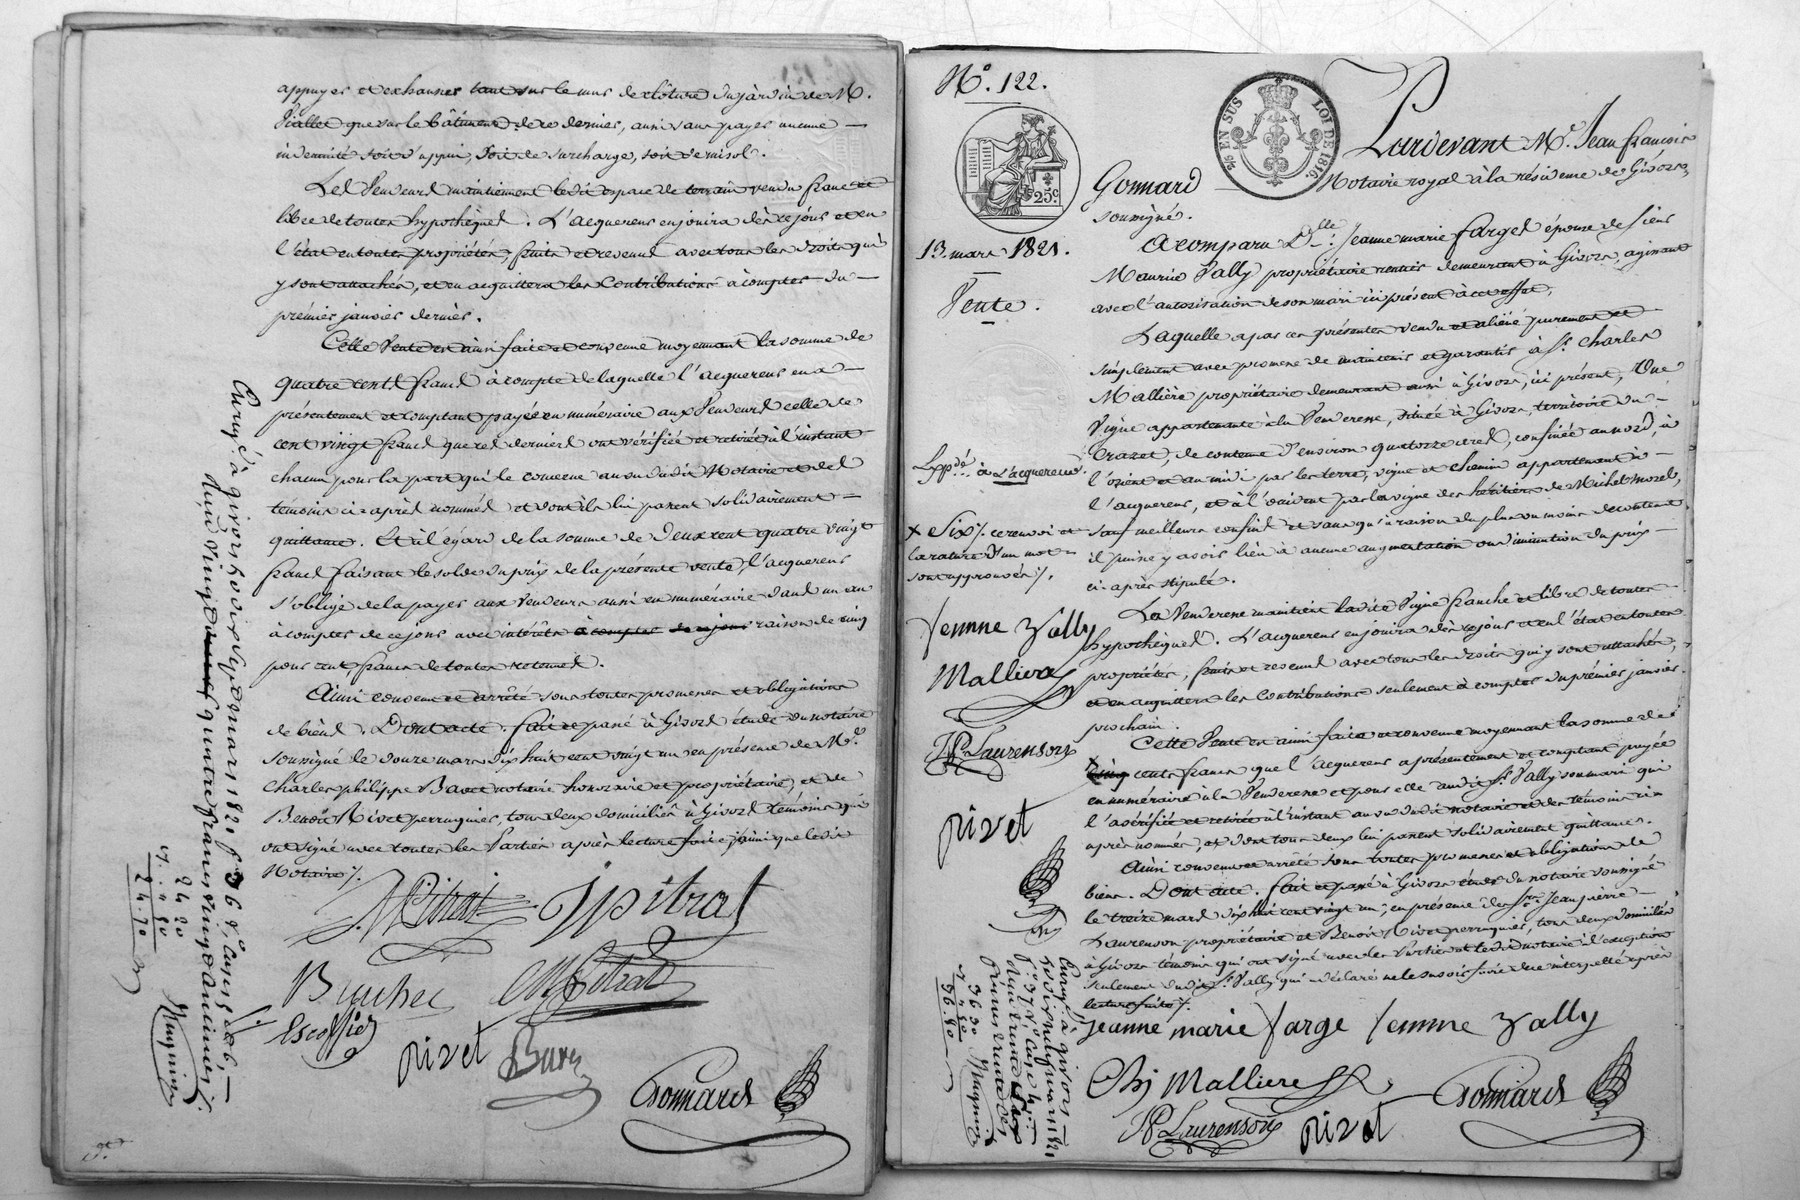 appuyer et exhausser tant sur le mur de clôture du jardin de M.
Viallet que sur le bâtiment de ce dernier, aussi sans payer aucune —
indemnité soit d'appui, soit de surcharge, soit de mi sol.
Les Vendeurs maintiennent ledit espace de terrain vendu franc et
libre de toutes hypothèques. L'acquereur en jouira dès ce jour et en
l'état en toutes propriétés, fruits et revenus avec tous les droits qui
y sont attachés, et en acquittera les Contributions à compter du —
premier janvier dernier.
Cette Vente est ainsi faite et convenue moyennant la somme de
quatre cents francs à compte de laquelle l'acquereur en a —
présentement et comptant payée en numéraire aux Vendeurs celle de
cent vingt francs que ces derniers ont vérifiée et retirée à l'instant
chacun pour la part qui le concerne au vu dudit Notaire et des
témoins ci-après nommés et dont ils lui passent solidairement —
quittance. Et à l'égard de la somme de Deux cent quatre vingt
francs faisant le solde du prix de la présente vente, l'acquereur
s'oblige de la payer aux Vendeurs aussi en numéraire dans un an
à compter de ce jour avec intérêts à compter de ce jour raison de cinq
pour cent, francs de toutes retenues.
Ainsi convenu et arrêté sous toutes promesses et obligations
de biens. Dont acte. fait et passé à Givors étude du notaire
soussigné le douze mars dix huit cent vingt un en présence de Mr.
Charles philippe Bavet notaire honoraire et propriétaire, et de
Benoît Rivet perruquier, tous deux domiciliés à Givors témoins qui
ont signé avec toutes les Parties après lecture faite ainsi que ledit
Notaire ./.
JPitrat
Buchet
Escoffier
pivet
Gonnard
24 20
2 . . 50
24. 70
Mugnier
N.o 122.
25c
2/26 EN SUS
LOI DE 1816.
Pardevant Me. Jean françois
Gonnard Notaire royal à la résidence de Givors,
soussigné.
13. mars 1821.
Vente.
A comparu Dlle. Jeanne marie farge épouse de sieur
Maurice Vally propriétaire rentier demeurant à Givors, agissant
avec l'autorisation de son mari ici présent à cet effet,
Laquelle a par ces présentes vendu et aliéné purement et
simplement avec promesse de maintenir et garantir à Sr. Charles
Mallière propriétaire demeurant aussi à Givors, ici présent, Une
Vigne appartenante à la Venderesse, située à Givors, territoire du —
Crazet, de contenue d'environ quatorze ares, confinée au nord, à
l'orient et au midi par les terre, vigne et chemin appartenant à —
l'acquereur, et à l'occident par la vigne des héritiers de Michel morel,
Expdé. à L'acquereur.
sauf meilleurs confins et sans qu'à raison du plus ou moins de contenue
il puisse y avoir lieu à aucune augmentation ou diminution du prix —
ci-après stipulé.
× Six ./. ce renvoi et
la rature d'un mot
sont approuvés ./.
femme Vally
Malliere
JP Laurenson
pivet
La Venderesse maintient ladite Vigne franche et libre de toutes
hypothèques. L'acquereur en jouira dès ce jour et en l'état en toutes
propriétés, fruits et revenus avec tous les droits qui y sont attachés,
et en acquittera les Contributions seulement à compter du premier janvier
prochain.
Cette Vente est ainsi faite et convenue moyennant la somme de
× cinq cents francs que l'acquereur a présentement et comptant payée
en numéraire à la Venderesse et pour elle audit Sr. Vally son mari qui
l'a vérifiée et retirée à l'instant au vu dudit notaire et des témoins ci-
après nommés, et dont tous deux lui passent solidairement quittance.
Ainsi convenu et arrêté sous toutes promesses et obligations de
biens. Dont acte. fait et passé à Givors étude du notaire soussigné
le treize mars dix huit cent vingt un, en présence des Srs. Jean pierre —
Laurenson propriétaire et Benoît Rivet perruquier, tous deux domiciliés
à Givors témoins qui ont signé avec les Parties et ledit notaire à l'exception
seulement dudit Sr. Vally qui a déclaré ne le savoir faire de ce interpellé après
lecture faite ./.
36 30
36. 80
Mugnier
jeanne marie farge femme Vally
Ch Malliere
JP Laurenson
pivet
Gonnard